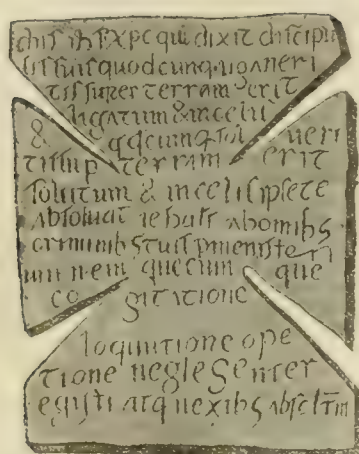 dns ihs xpc qui dixit discipu
lis suis quodcunq: ligaveri
tis super terram erit
ligatum & in celis
& qdcunq sol veri
tis sup terram erit
solutum & in celis ipse te
absoluat ab omibs
criminibs tuis p ministeri
um nem quecum que
co gitatione
loquutione ope
tione neglegenter
egisti atq nexibs absoltm